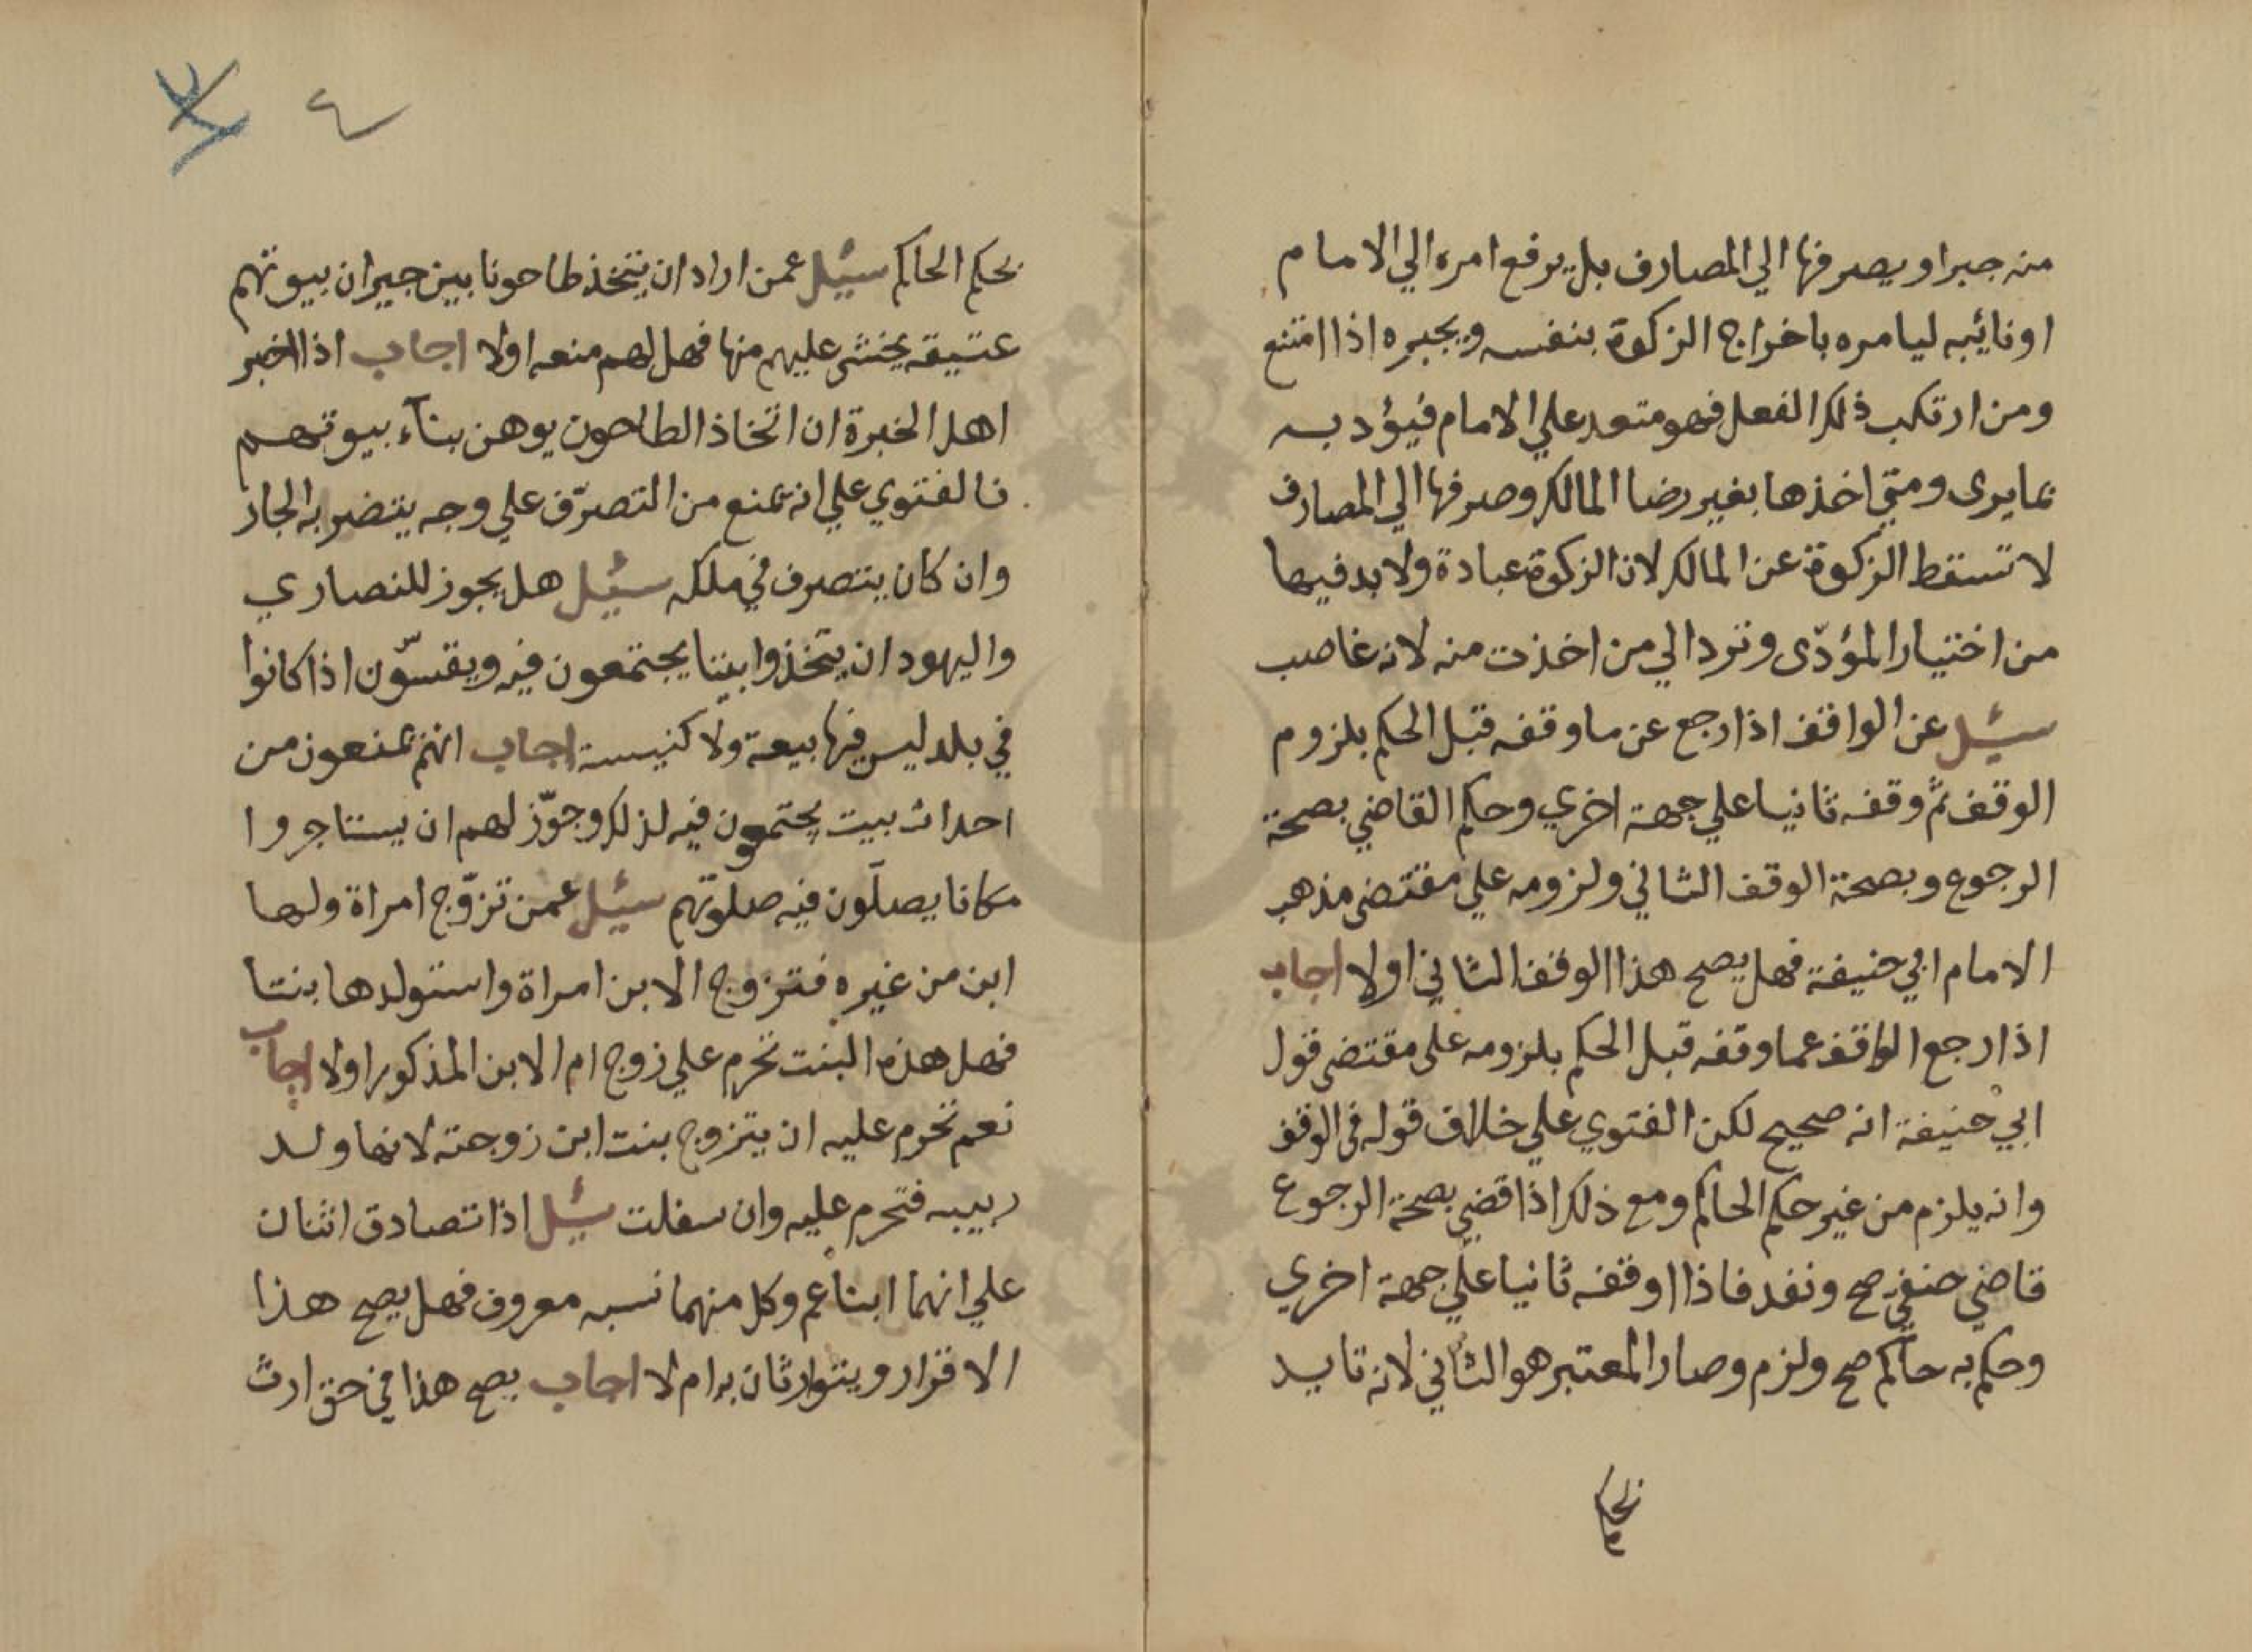 منه جبرا ويصرفها الي المصارف بل يرفع امره الي الامام
او نائبه ليامره باخراج الزكوة بنفسه ويجبره اذا امتنع
ومن ارتكب ذلك الفعل فهو متعد علي الامام فيؤدبه
بما يرى ومتي اخذها بغير رضا المالك وصرفها الي المصارف
لا تسقط الزكوة عن المالك لان الزكوة عبادة ولا بد فيها
من اختيار المؤدّى وترد الي من اخذت منه لانه غاصب
سئل عن الواقف اذا رجع عن ما وقفه قبل الحكم بلزوم
الوقف ثم وقفه ثانيا علي جهة اخري وحكم القاضي بصحة
الرجوع وبصحة الوقف الثاني ولزومه علي مقتضى مذهب
الامام ابي حنيفة فهل يصح هذا الوقف الثاني اولا اجاب
اذا رجع الواقف عما وقفه قبل الحكم بلزومه على مقتضى قول
ابي حنيفة انه صحيح لكن الفتوي علي خلاف قوله فى الوقف
وانه يلزم من غير حكم الحاكم ومع ذلك اذا قضي بصحة الرجوع
قاضي حنفي صح ونفد فاذا اوقفه ثانيا علي جهة اخري
وحكم به حاكم صح ولزم وصار المعتبر هو الثاني لانه تايد
بحكم
٤
بحكم الحاكم سئل عمن اراد ان يتخذ طاحونا بين جيران بيوتهم
عتيقه يخشى عليهم منها فهل لهم منعه اولا اجاب اذا اخبر
اهل الخبرة ان اتخاذ الطاحون يوهن بنآء بيوتهم
فالفتوي علي انه يمنع من التصرّف علي وجه يتضرر به الجار
وان كان يتصرف في ملكه سئل هل يجوز للنصاري
واليهود ان يتخذوا بيتا يجتمعون فيه ويقسّون اذا كانوا
في بلد ليس فيها بيعة ولا كنيسة اجاب انهم يمنعون من
احداث بيت يجتمعون فيه لذلك وجوّز لهم ان يستاجروا
مكانا يصلّون فيه صلوتهم سئل عمن تزوّج امراة ولها
ابن من غيره فتزوج الابن امراة واستولدها بنتا
فهل هذه البنت تحرم علي زوج ام الابن المذكور اولا اجاب
نعم تحرم عليه ان يتزوج بنت ابن زوجته لانها ولد
ربيبه فتحرم عليه وان سفلت سئل اذا تصادق اثنان
علي انهما ابنا عم وكل منهما نسبه معروف فهل يصح هذا
الاقرار ويتوارثان به ام لا اجاب يصح هذا في حق ارث